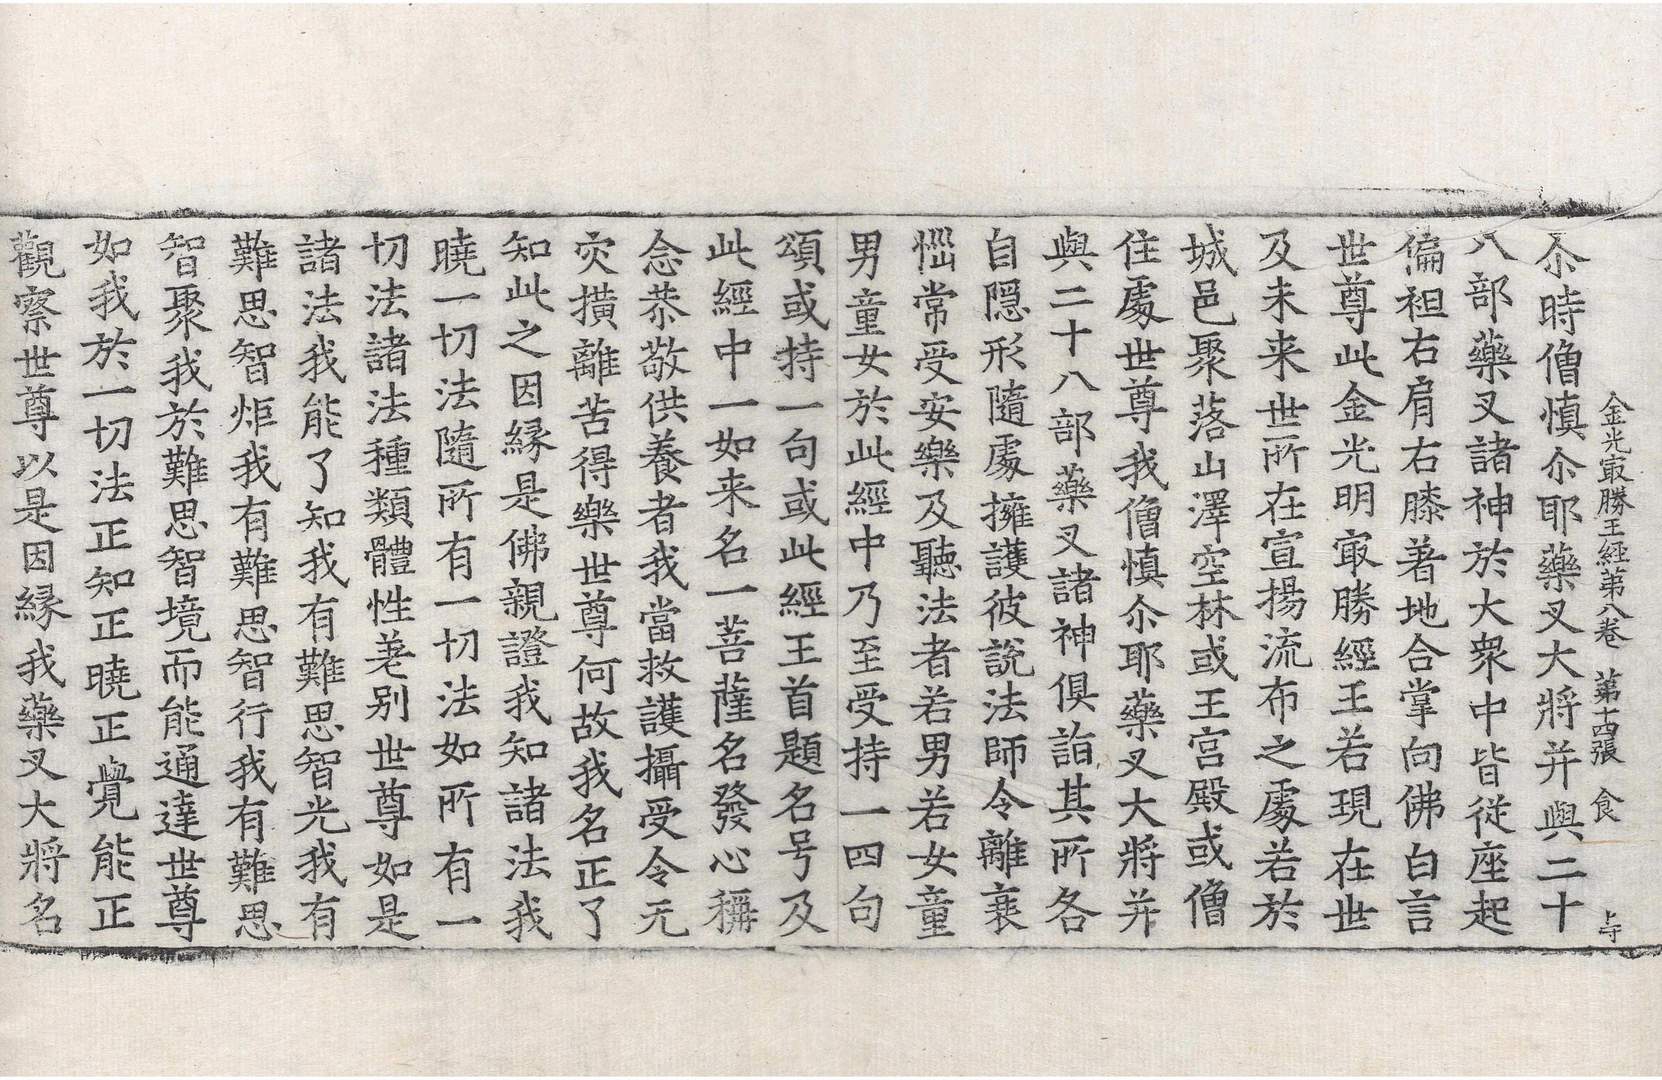 金光㝡勝王經第八卷　第十四張　食　上寺
尒時僧慎尒耶藥叉大將并與二十
八部藥叉諸神於大衆中皆從座起
偏袒右肩右膝著地合掌向佛白言
世尊此金光明㝡勝經王若現在世
及未来世所在宣揚流布之處若於
城邑聚落山澤空林或王宮殿或僧
住處世尊我僧慎尒耶藥叉大將并
與二十八部藥叉諸神俱詣其所各
自隱形隨處擁護彼說法師令離衰
惱常受安樂及聽法者若男若女童
男童女於此經中乃至受持一四句
頌或持一句或此經王首題名号及
此經中一如来名一菩薩名發心稱
念恭敬供養者我當救護攝受令无
灾撗離苦得樂世尊何故我名正了
知此之因縁是佛親證我知諸法我
曉一切法隨所有一切法如所有一
切法諸法種類體性差别世尊如是
諸法我能了知我有難思智光我有
難思智炬我有難思智行我有難思
智聚我於難思智境而能通達世尊
如我於一切法正知正曉正覺能正
觀察世尊以是因縁我藥叉大將名